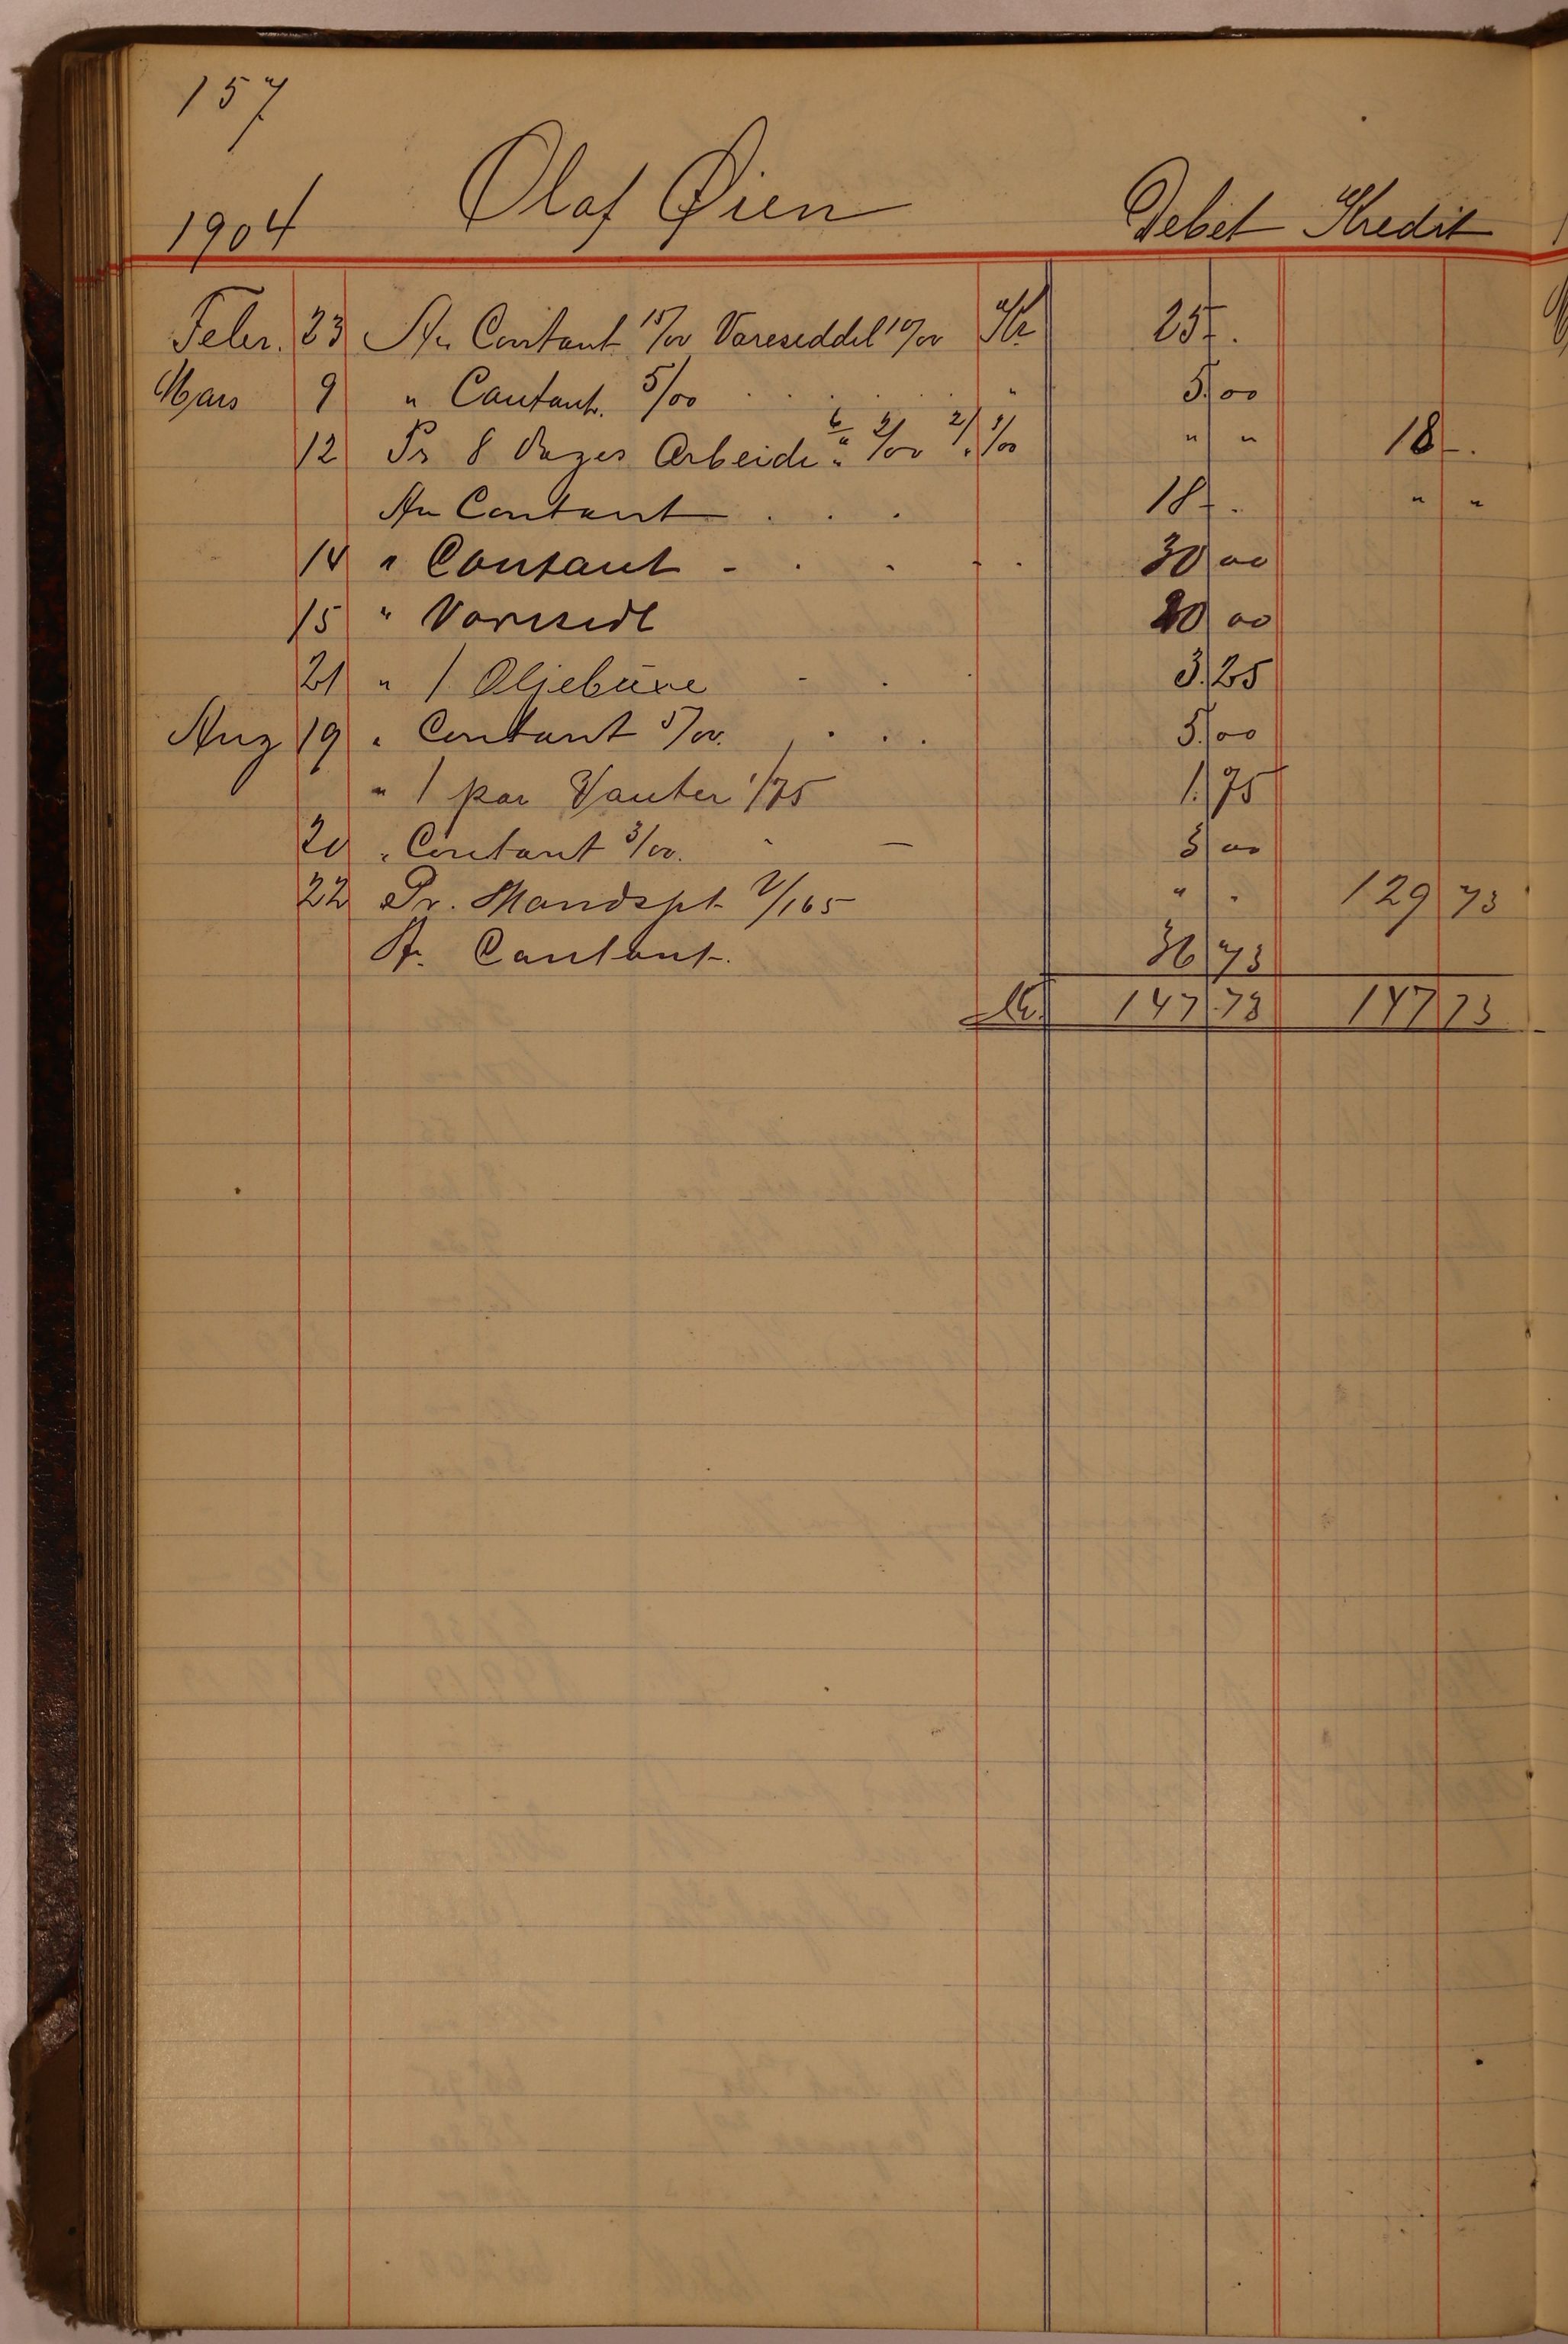 157
1904 Olaf Øien Debet Kredit
Febr. 23 An Contant 15/00 Vareseddel 10/00 Kr 25 - .
Mars 9 " Contant. 5/00 . . . . . " 5.00
12 Pr 8 Dages Arbeide 6/" 2/00 2/" 3/00 " " 18 - .
An Contant . . . 18 - . " "
14 " Contant - . . - . 30 00
15 " Varesedl 20 00
21 " 1 Oljebuxe - . . 3.25
Aug 19 " Contant 5/00. . . . 5.00
" 1 par Vanter 1/75 1.75
20 " Contant 3/00. - - 3 00
22 Pr. Mandspt 2/165 " " 129 73
A. Contant. 36 73
Kr. 147 73 147 73